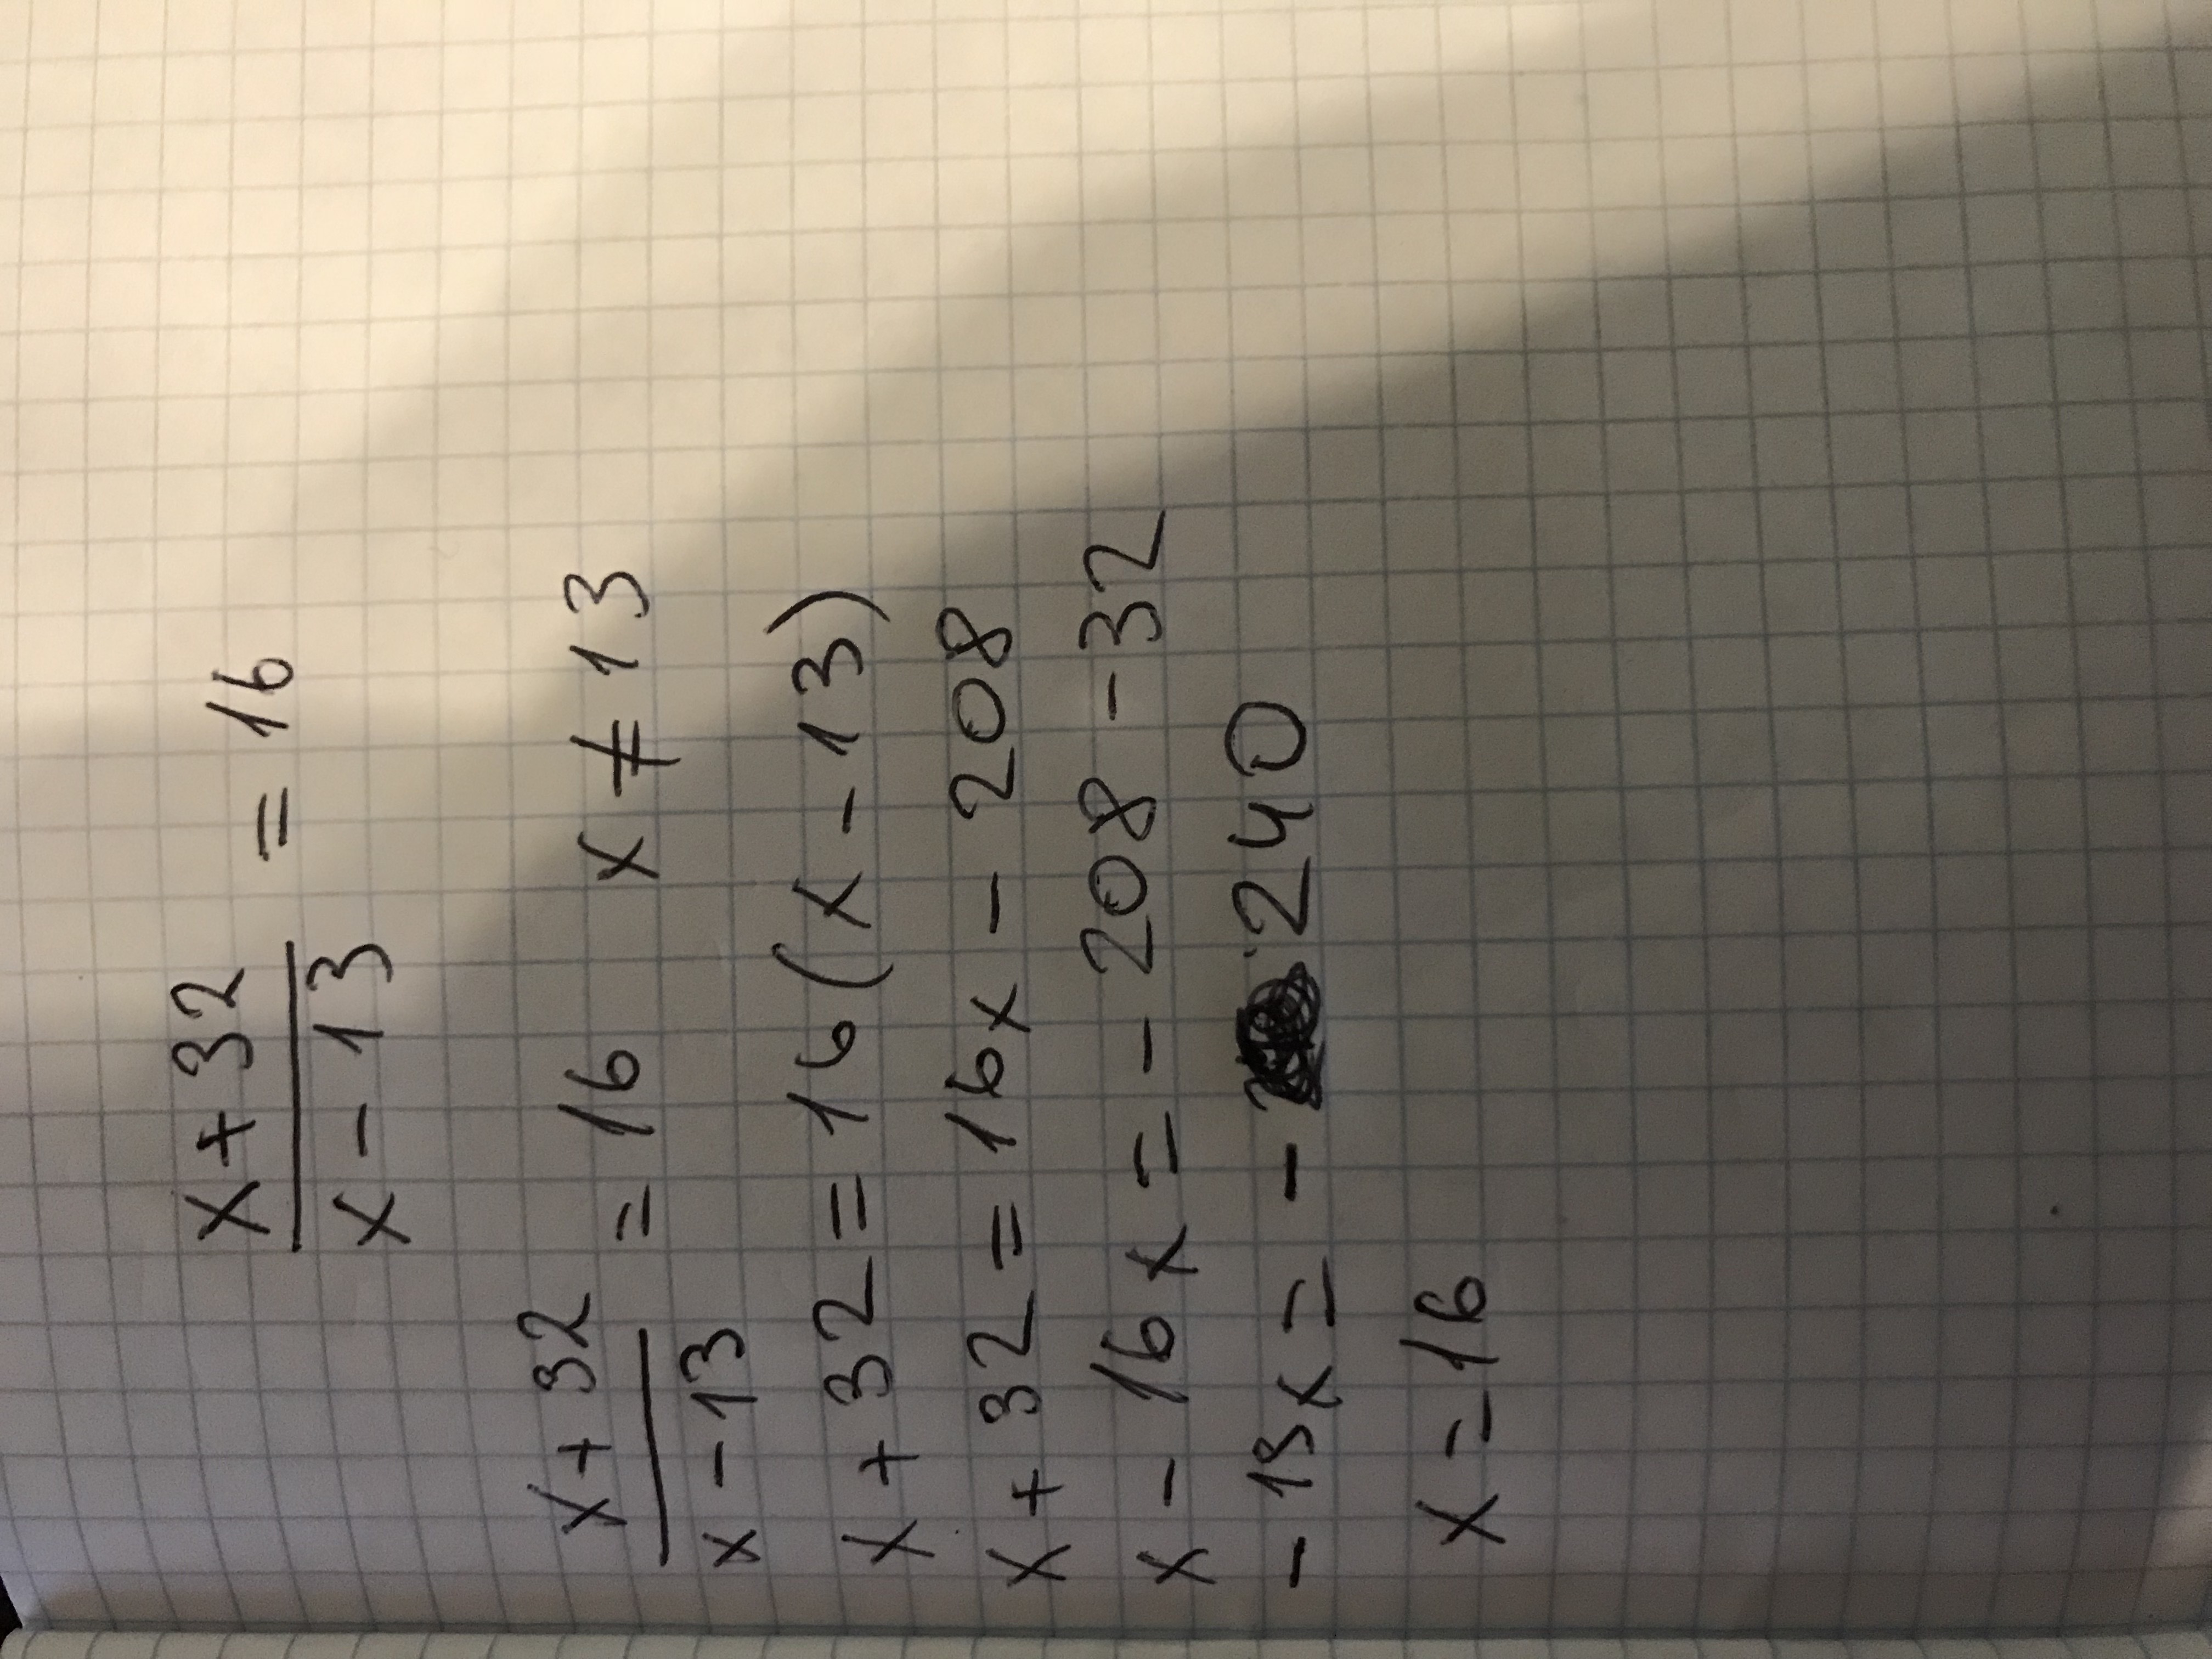 x + 32 / x - 13 = 16
x + 32 / x - 13 = 16 x ≠ 13
x + 32 = 16 ( x - 13 )
x + 32 = 16x - 208
x - 16x = - 208 - 32
- 15x = - 240
x = 16